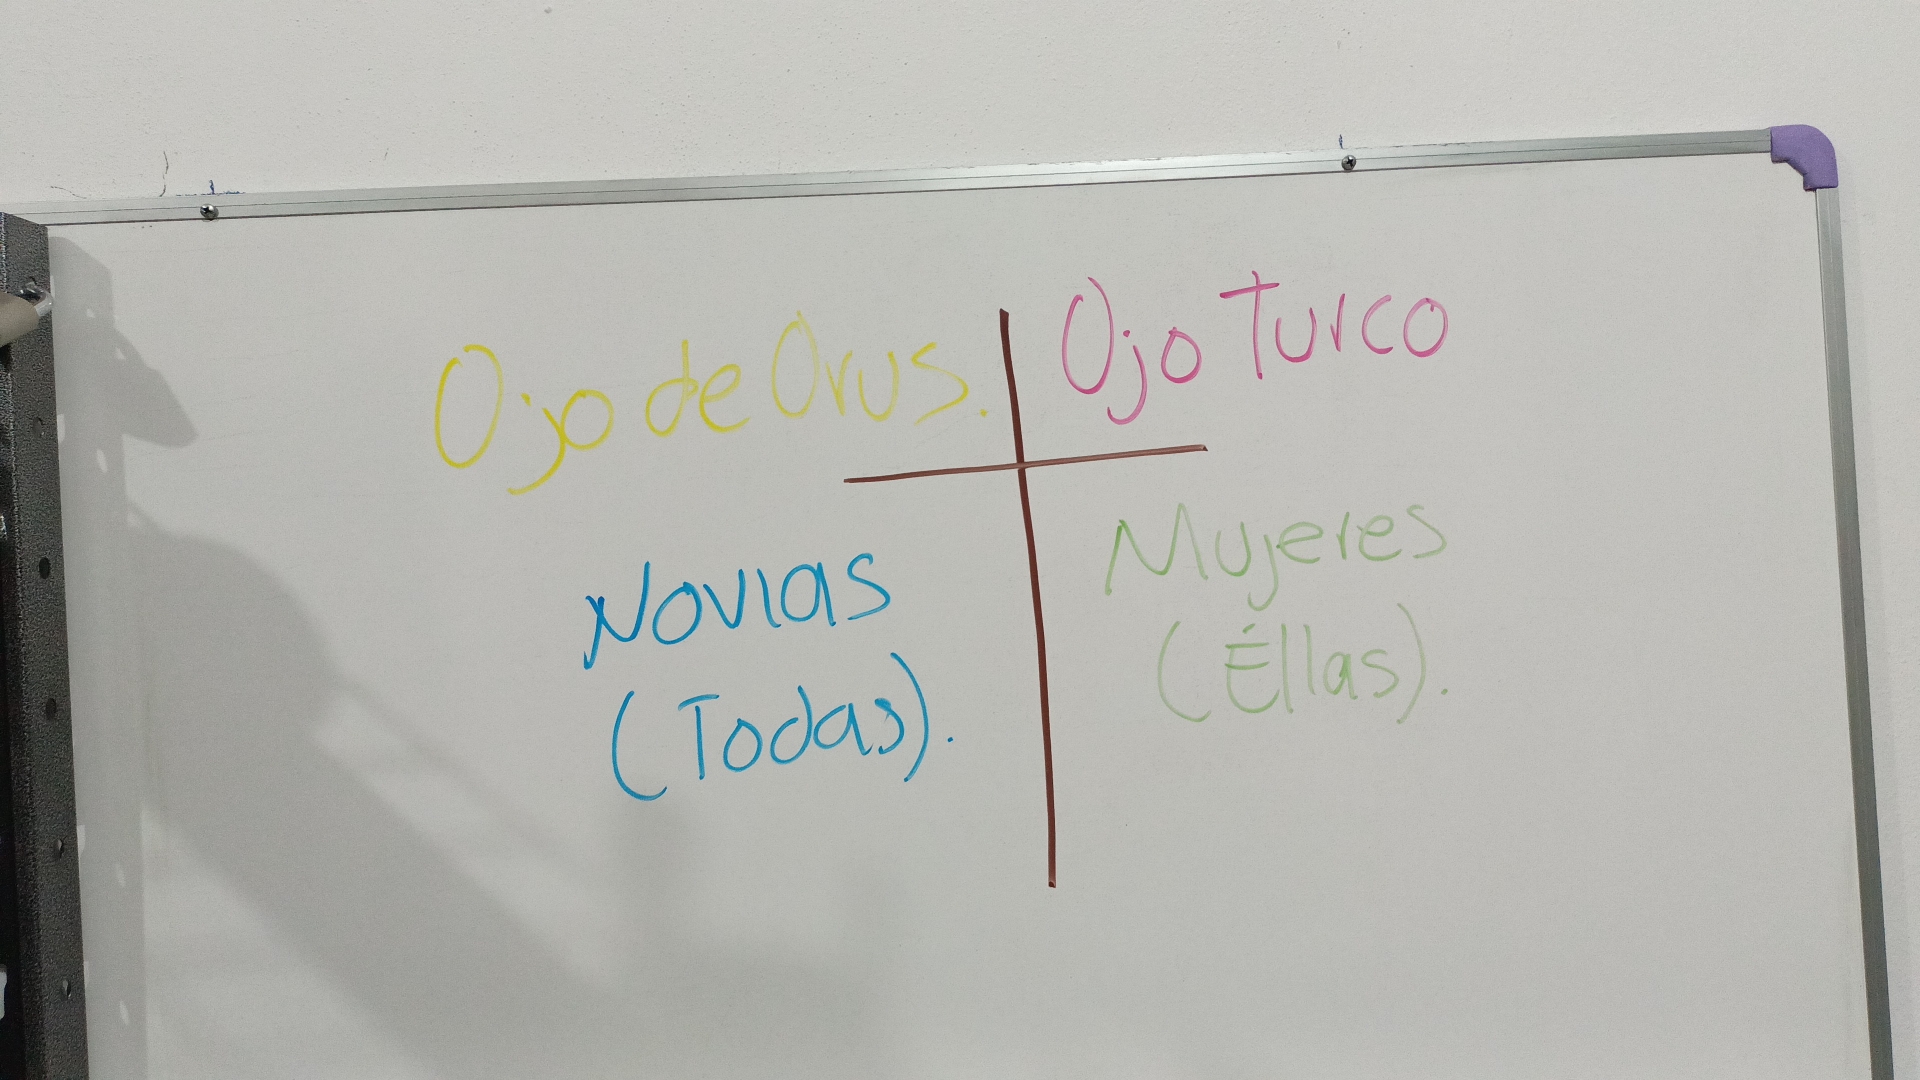 Ojo de Orus.
Ojo Turco
Novias
(Todas).
Mujeres
(Éllas).